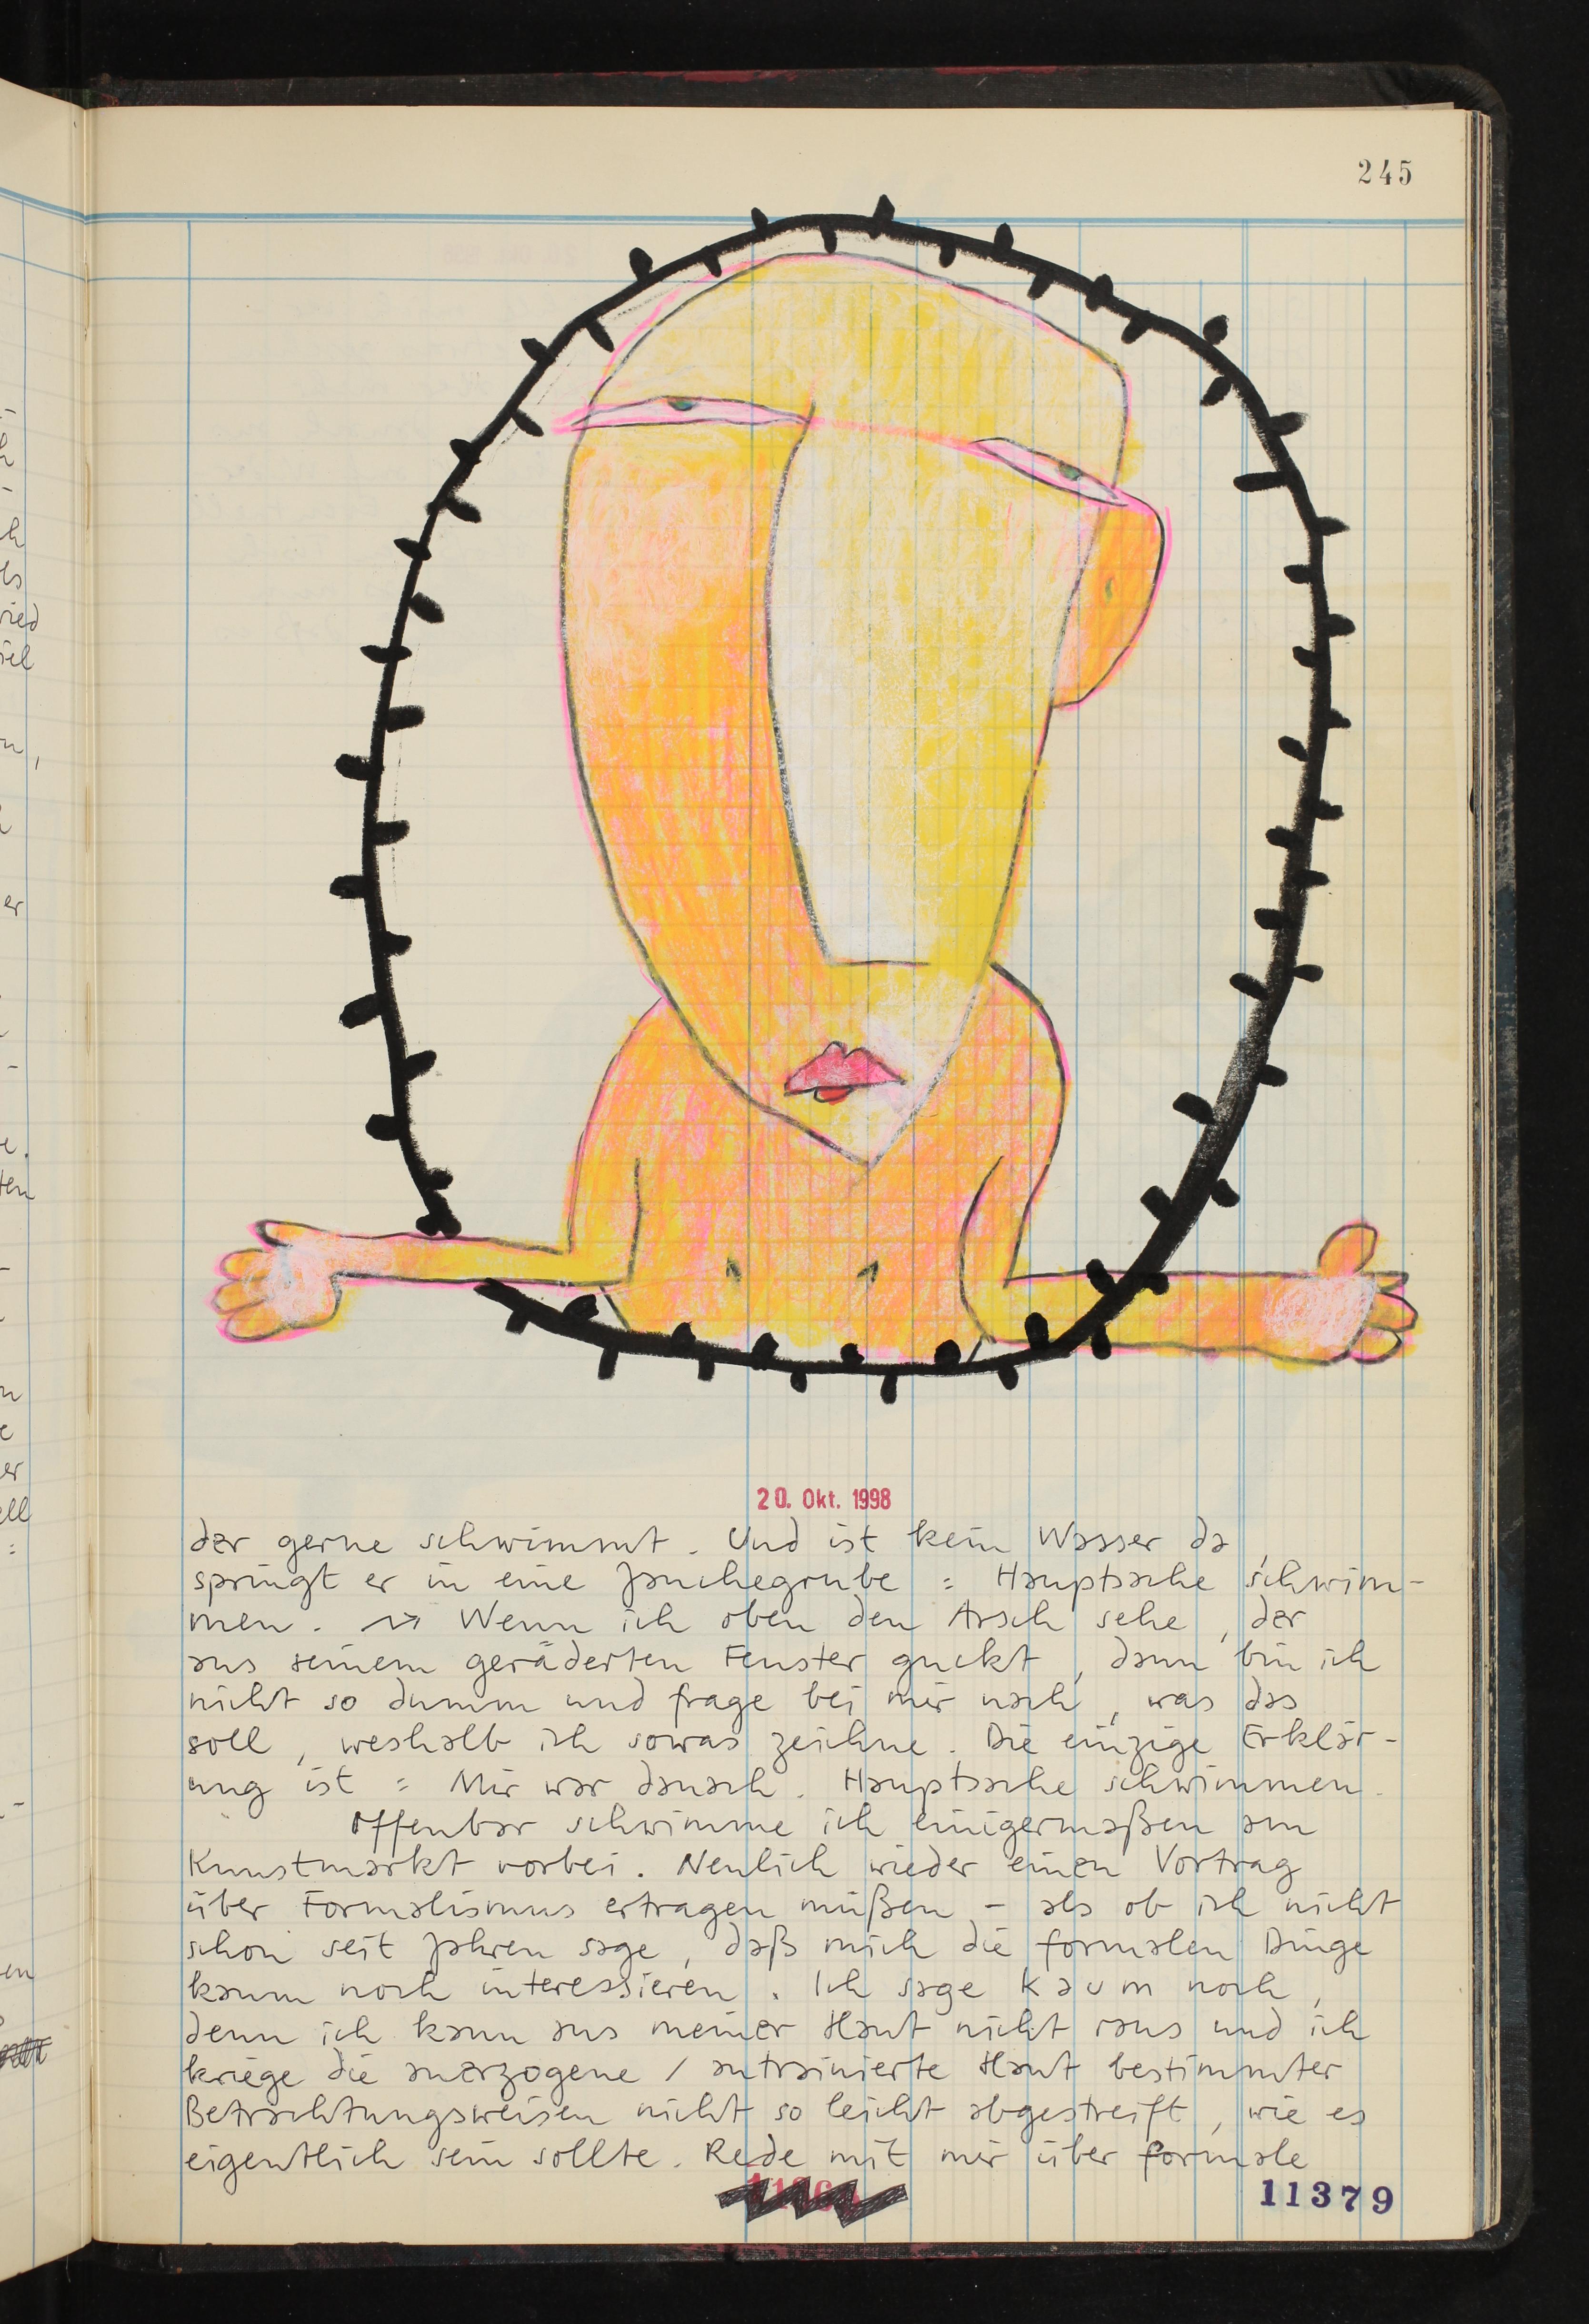 245
20. Okt. 1998
der gerne schwimmt. Und ist kein Wasser da,
springt er in eine Jauchegrube : Hauptsache schwim-
men. → Wenn ich oben den Arsch sehe, der
aus seinem geräderten Fenster guckt, dann bin ich
nicht so dumm und frage bei mir nach, was das
soll, weshalb ich sowas zeichne. Die einzige Erklär-
ung ist : Mir war danach. Hauptsache schwimmen.
Offenbar schwimme ich einigermaßen am
Kunstmarkt vorbei. Neulich wieder einen Vortrag
über Formalismus ertragen müßen – als ob ich nicht
schon seit Jahren sage, daß mich die formalen Dinge
kaum noch interessieren. Ich sage kaum noch,
denn ich kann aus meiner Haut nicht raus und ich
kriege die anerzogene / antrainierte Haut bestimmter
Betrachtungsweisen nicht so leicht abgestreift, wie es
eigentlich sein sollte. Rede mit mir über formale
11379